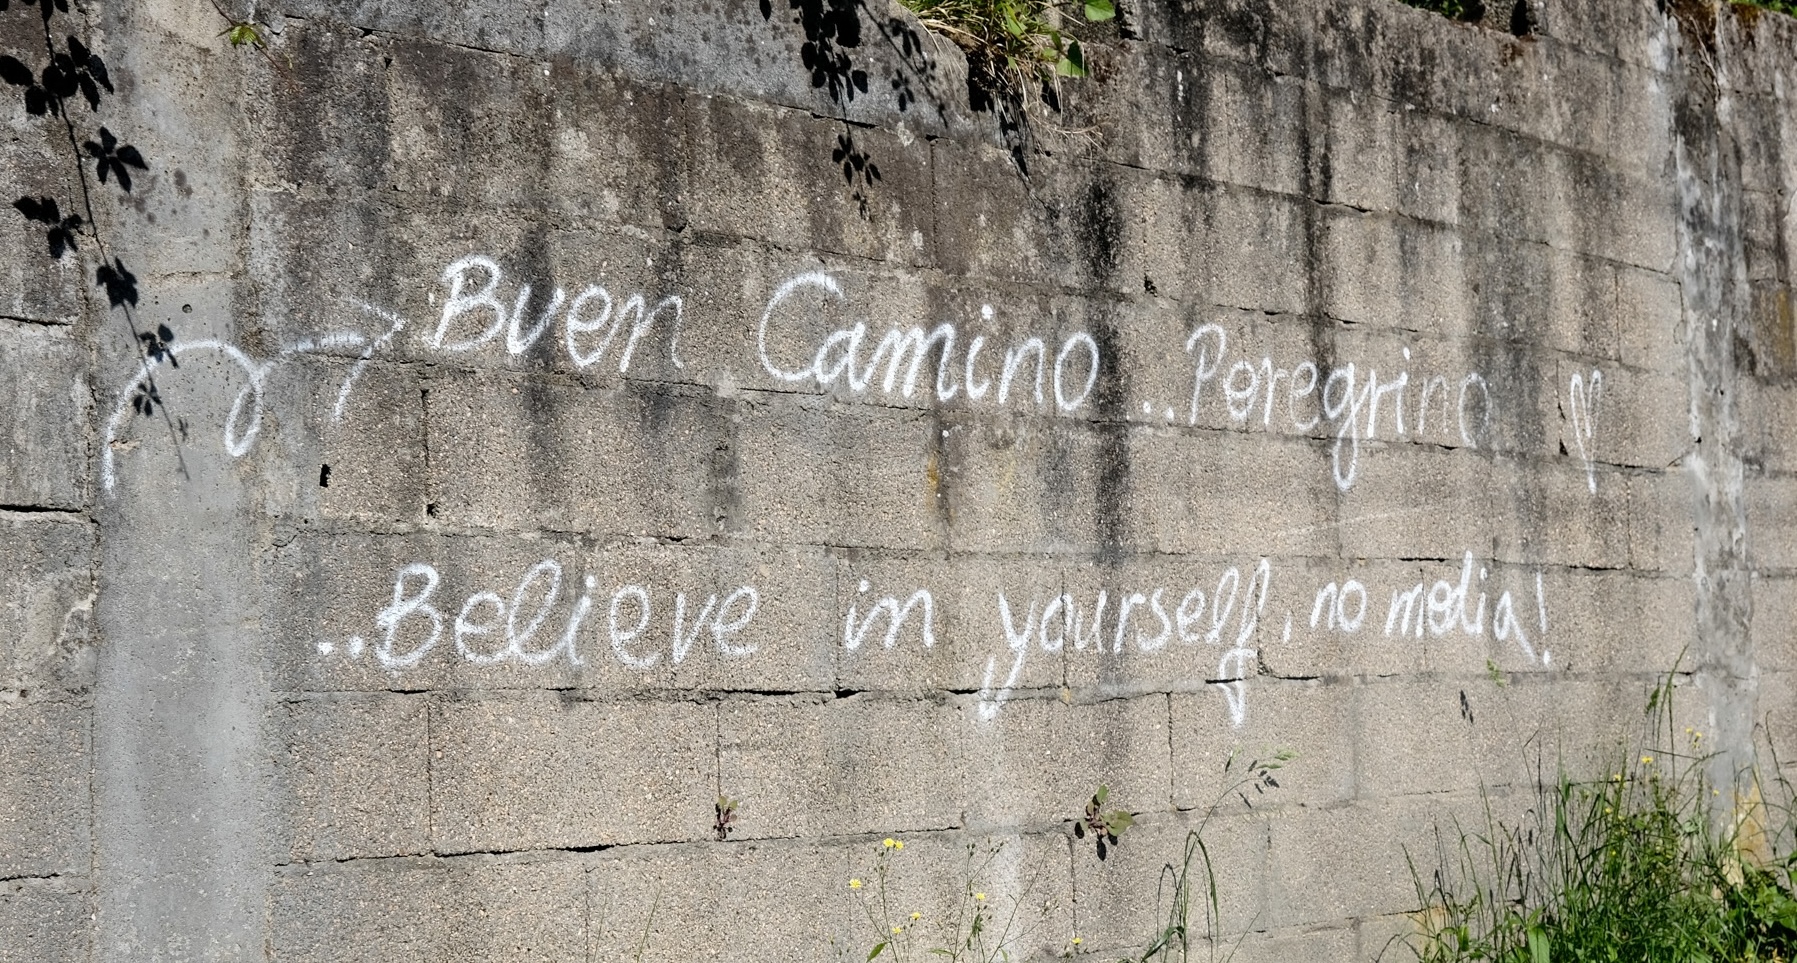 Buen Camino .. Peregrino
..Believe in yourself, no media!